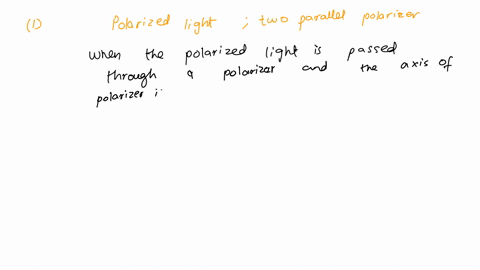 (1) Polarized light ; two parallel polarizer
When the polarized light is passed
through a polarizer and the axis of
polarizer i: